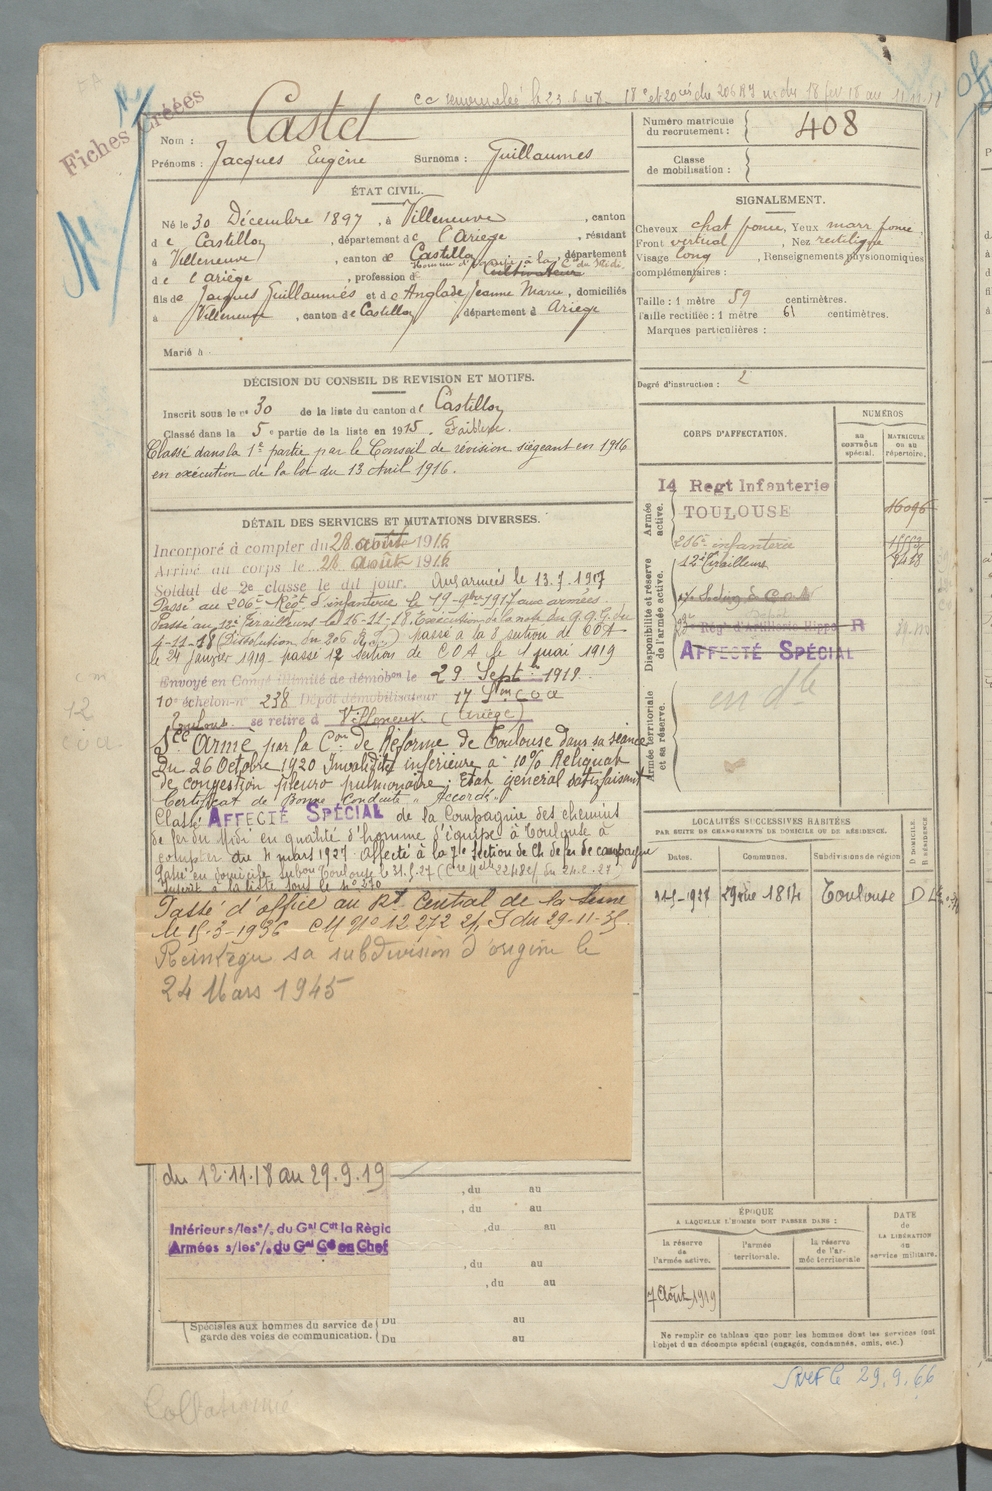 Fiches créées
Nom : Castel
Prénoms : Jacques Eugène Surnoms : Guillaumes
Numéro matricule
du recrutement : 408
Classe
de mobilisation :
ÉTAT CIVIL.
Né le 30 Décembre 1897, à Villeneuve, canton
de Castillon, département de l'Ariège, résidant
à Villeneuve, canton de Castillon, département
de l'ariège, profession de Cultivateur
fils de Jacques Guillaumes et de Anglade Jeanne Marie, domiciliés
à Villeneuve, canton de Castillon, département d Ariège
Marié à
SIGNALEMENT.
Cheveux chat foncé, Yeux marr foncé,
Front vertical, Nez rectiligne
Visage long, Renseignements physionomiques
complémentaires :
Taille : 1 mètre 59 centimètres.
Taille rectifiée : 1 mètre 61 centimètres.
Marques particulières :
Degré d'instruction : 2
DÉCISION DU CONSEIL DE REVISION ET MOTIFS.
Inscrit sous le n° 30 de la liste du canton de Castillon
Classé dans la 5e partie de la liste en 1915. Faiblesse.
Classé dans la 1e partie par le Conseil de révision siégeant en 1916
en exécution de la loi du 13 Avril 1916.
DÉTAIL DES SERVICES ET MUTATIONS DIVERSES.
Incorporé à compter du 28 août 1916
Arrivé au corps le 28 août 1916
Soldat de 2e classe le dit jour. Aux armées le 13.7.1917
Passé au 206e Régt d'infanterie le 19-9bre 1917 aux armées.
Passé au 12e Tirailleurs le 16-11-18. Exécution de la note du G.Q.G. du
4-11-18 (Dissolution du 206 R.I.) passé à la 8 section de COA
le 24 Janvier 1919. passé 12 section de COA le 1 mai 1919
Envoyé en Congé illimité de démobon le 29 Septbre 1919.
10e échelon-n° 238 Dépôt démobilisateur 17 Son COA
Toulouse se retire à Villeneuve (Ariège)
Sce Armé par la Con de Réforme de Toulouse dans sa séance
du 26 Octobre 1920 Invalidité inférieure à 10% Reliquat
de congestion pleuro pulmonaire ; Etat général satisfaisant
Certificat de Bonne Conduite "Accordé"
Classé AFFECTÉ SPÉCIAL de la Compagnie des chemins
de fer du Midi en qualité d'homme d'équipe à Toulouse à
compter du 11 mars 1927 Affecté à la 7e Section de Ch de fer de campagne
Passé d'office au Rt Central de la Seine
le 15-3-1936 CM N° 12 272 2/S du 29-11-35.
Reintégré sa subdivision d'origine le
24 Mars 1945
du 12.11.18 au 29.9.19
Intérieur s/les°/. du Gal Ct la Régio
Armées s/les°/. du Gal Gd en Chef
, du au
, du au
, du au
, du au
, du au
Spéciales aux hommes du service de
garde des voies de communication.
Du au
Du au
CORPS D'AFFECTATION.
NUMÉROS
AU CONTRÔLE spécial.
MATRICULE ou au répertoire.
Armée active.
14 Regt Infanterie
TOULOUSE
16096
206e infanterie
12e Tirailleurs
8418
Disponibilité et réserve de l'armée active.
Régt d'Artillerie Hippo R
AFFECTÉ SPÉCIAL
Armée territoriale et sa réserve.
en dté
LOCALITÉS SUCCESSIVES HABITÉES
PAR SUITE DE CHANGEMENTS DE DOMICILE OU DE RÉSIDENCE.
Dates. Communes. Subdivisions de région D DOMICILE R RÉSIDENCE
Toulouse D
ÉPOQUE
A LAQUELLE L'HOMME DOIT PASSER DANS :
la réserve de l'armée active.
l'armée territoriale.
la réserve de l'armée territoriale
DATE de LA LIBÉRATION du service militaire.
7 Août 1919
Ne remplir ce tableau que pour les hommes dont les services font
l'objet d'un décompte spécial (engagés, condamnés, omis, etc.)
29.9.66